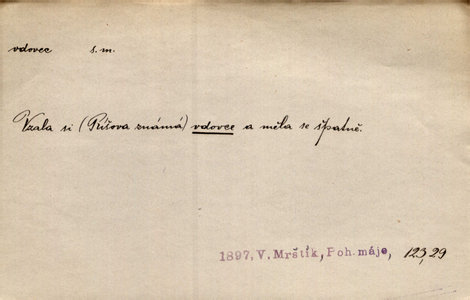 vdovec s.m.
Vzala si (Ríšova známá) vdovce a měla se špatně.
1897, V. Mrštík, Poh. máje, 123,29